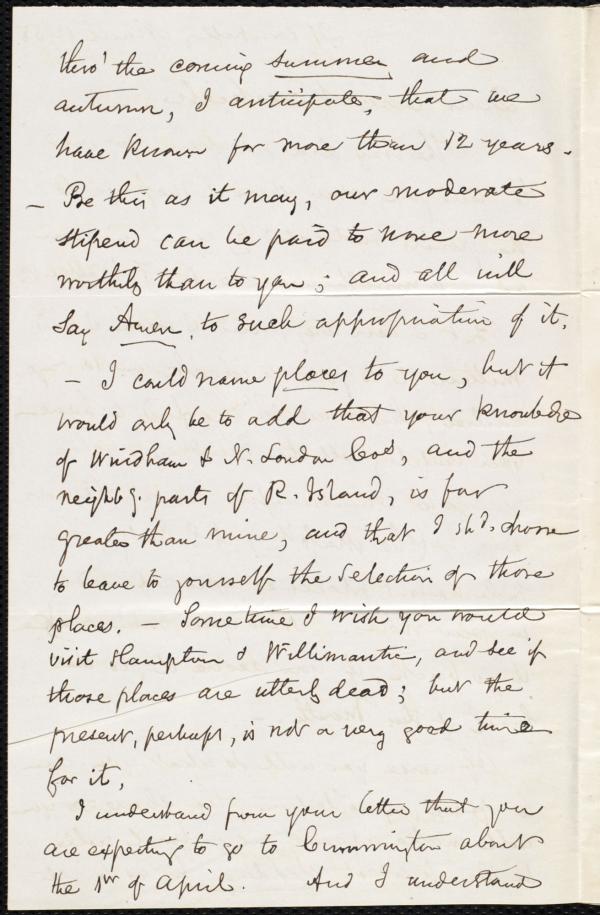 thro' the coming summer and
autumn, I anticipate, that we
have known for more than 12 years.
– Be this as it may, our moderate
stipend can be paid to none more
worthily than to you; and all will
say Amen, to such appropriation of it.
– I could name places to you, but it
would only be to add that your knowledge
of Windham & N. London Cos, and the
neighbg. parts of R. Island, is far
greater than mine, and that I shd. choose
to leave to yourself the selection of those
places. – Sometime I wish you would
visit Hampton & Willimantic, and see if
those places are utterly dead; but the
present, perhaps, is not a very good time
for it.
I understand from your letter that you
are expecting to go to Cummington about
the 1st of April. And I understand